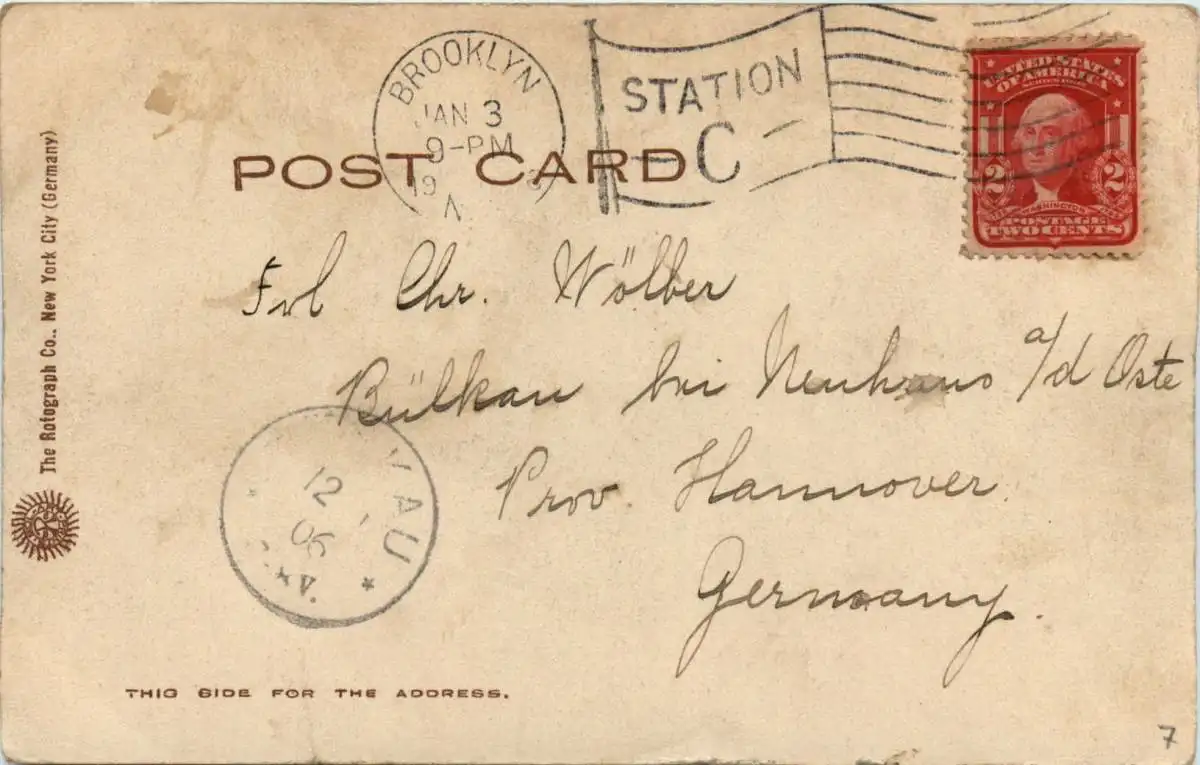 BROOKLYN
JAN 3
9-PM
19
N
STATION
C
UNITED STATES
OF AMERICA
2 2
WASHINGTON
POSTAGE
TWO CENTS
POST CARD
The Rotograph Co., New York City (Germany)
Frl Chr. Wölber
Bülkau bei Neuhaus a/d Oste
Prov. Hannover.
Germany.
KAU
12
06
THIS SIDE FOR THE ADDRESS.
7